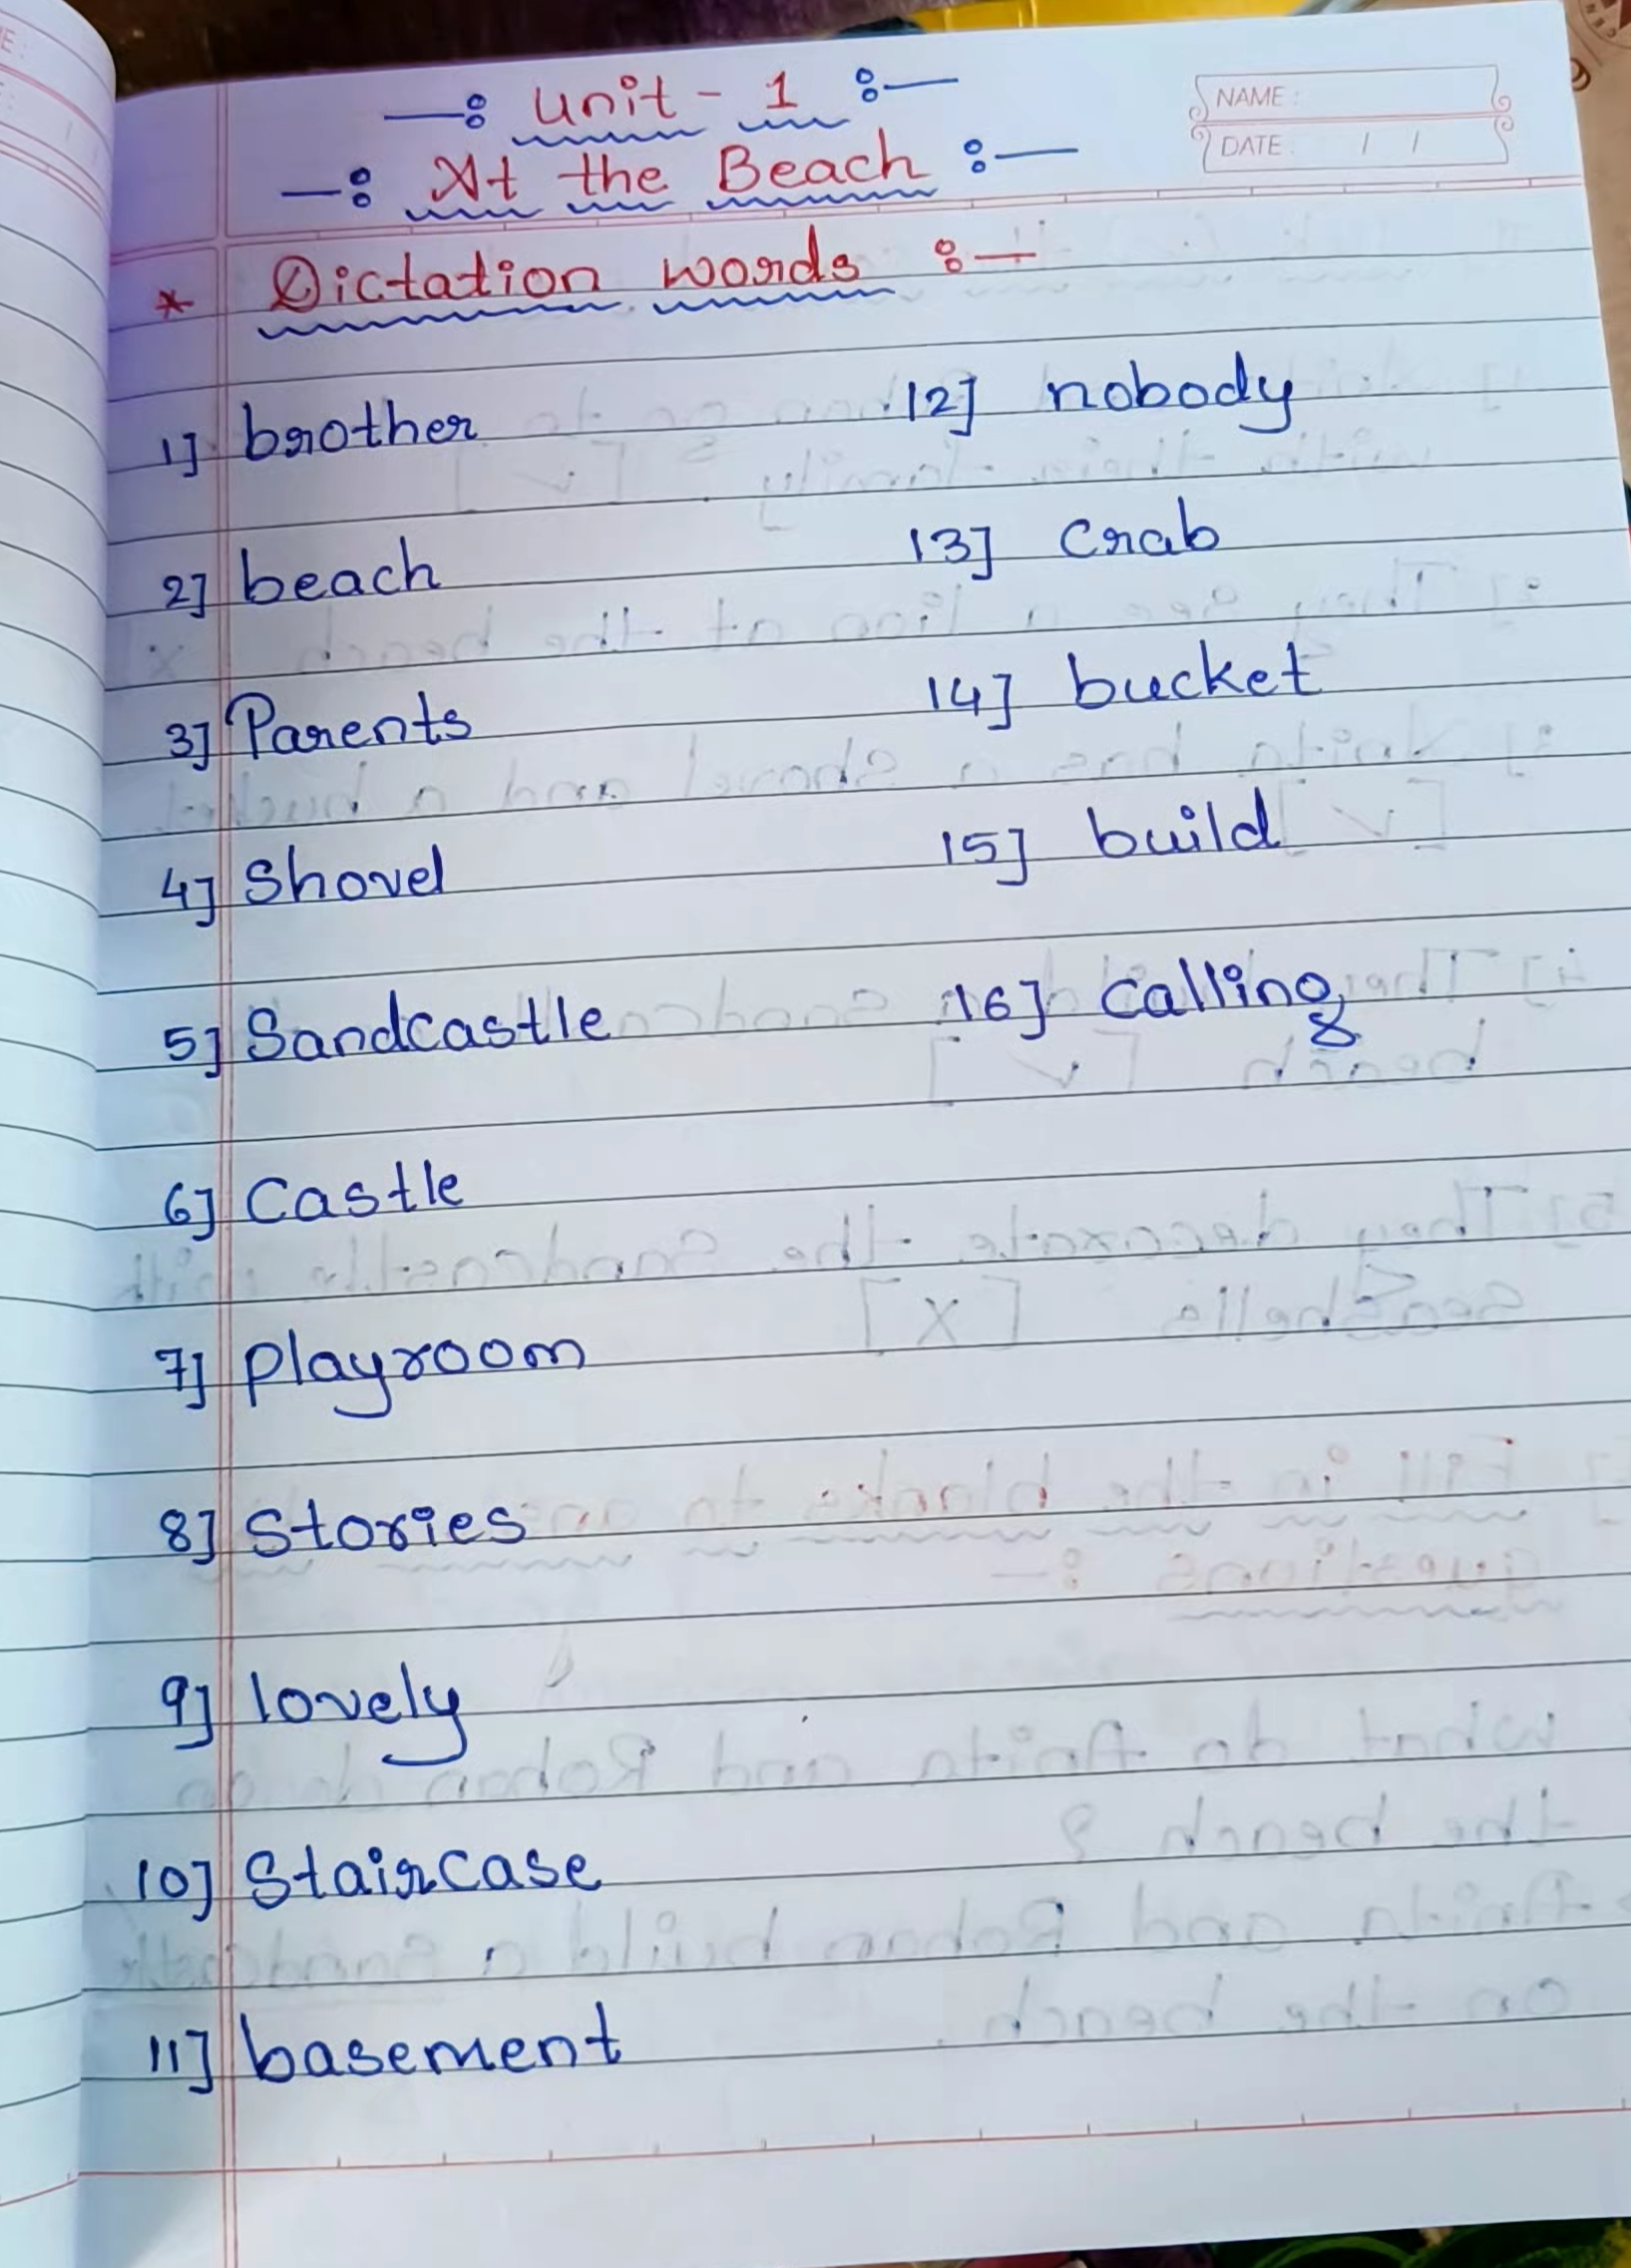 —: Unit - 1 :—
—: At the Beach :—
NAME :
DATE : / /
* Dictation words :—
1] brother
2] beach
3] Parents
4] Shovel
5] Sandcastle
6] Castle
7] Playroom
8] Stories
9] lovely
10] Staircase
11] basement
12] nobody
13] Crab
14] bucket
15] build
16] Calling